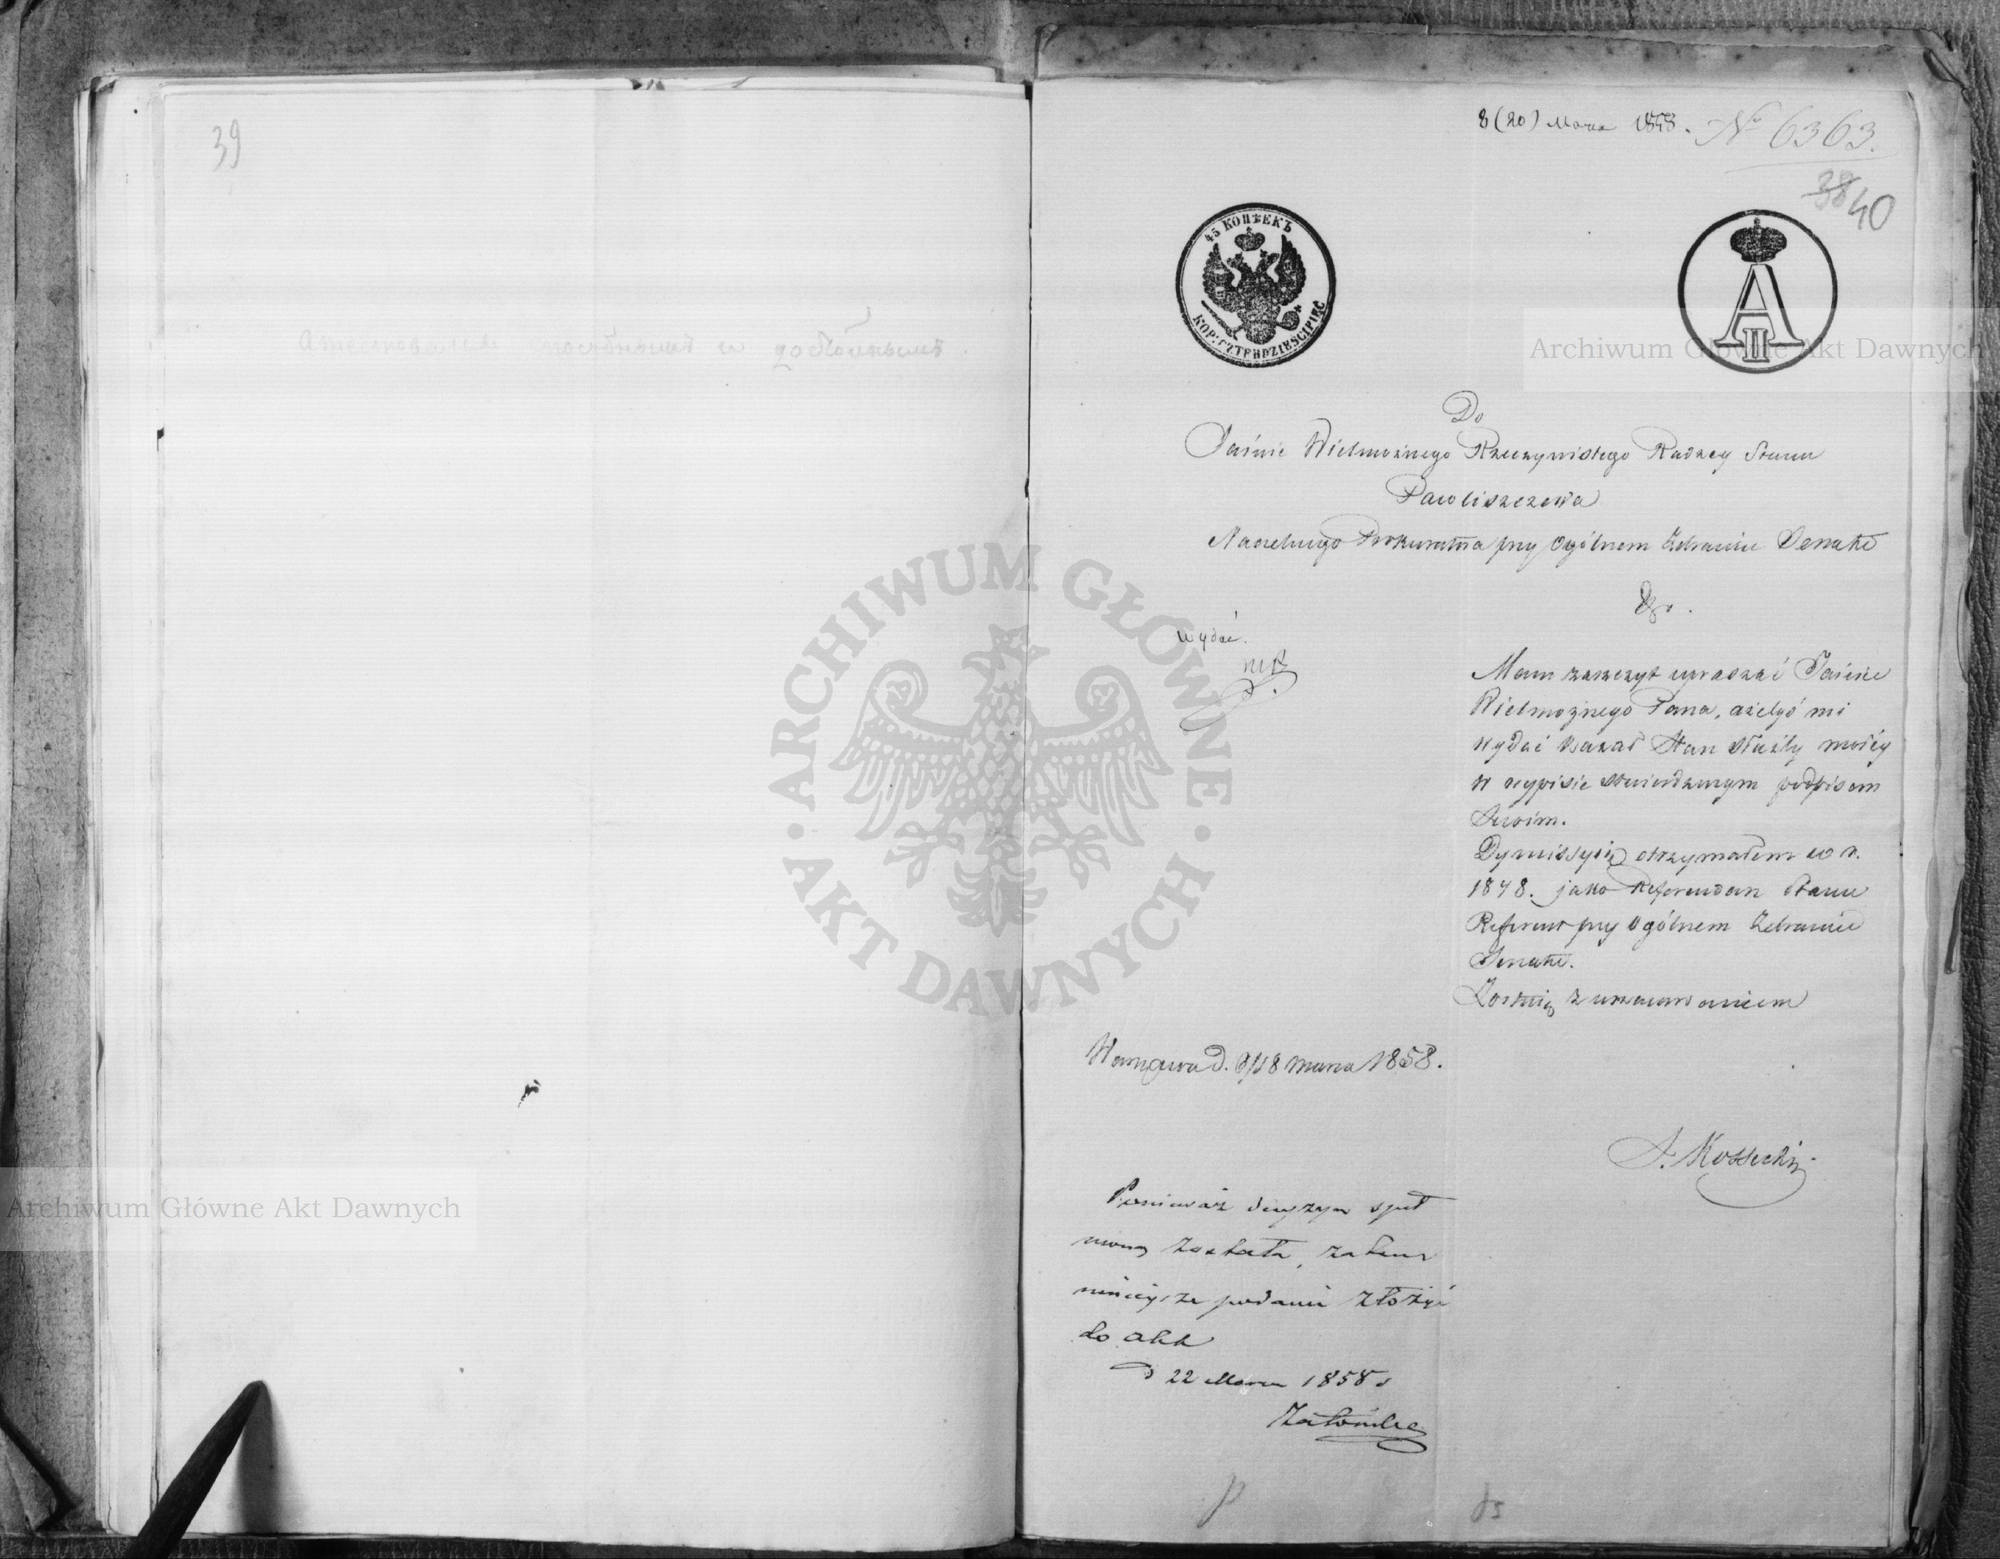 39
8 (20) Marca 1858.
№ 6363.
38 40
45 КОПѢЕКЪ
KOP: CZTERDZIEŚCI PIĘĆ
A II
Do
Jaśnie Wielmożnego Rzeczywistego Radzcy Stanu
Pawliszczewa
Naczelnego Prokuratora przy Ogólnem Zebraniu Senatu
wydać.
Mam zaszczyt upraszać Jaśnie
Wielmożnego Pana, ażebyś mi
wydać kazał Stan Służby mojéy
w wypisie stwierdzonym podpisem
Swoim.
Dymissyią otrzymałem w r.
1848. jako Referendarz Stanu
Referent przy Ogólnem Zebraniu
Senatu.
Zostaię z uszanowaniem
Warszawa d. 6/18 marca 1858.
A. Kossecki
Ponieważ decyzya speł
niona została, zatem
ninieysze podanie złożyć
do akt
d 22 Marca 1858 r
ARCHIWUM GŁÓWNE
AKT DAWNYCH
Archiwum Główne Akt Dawnych
Archiwum Główne Akt Dawnych